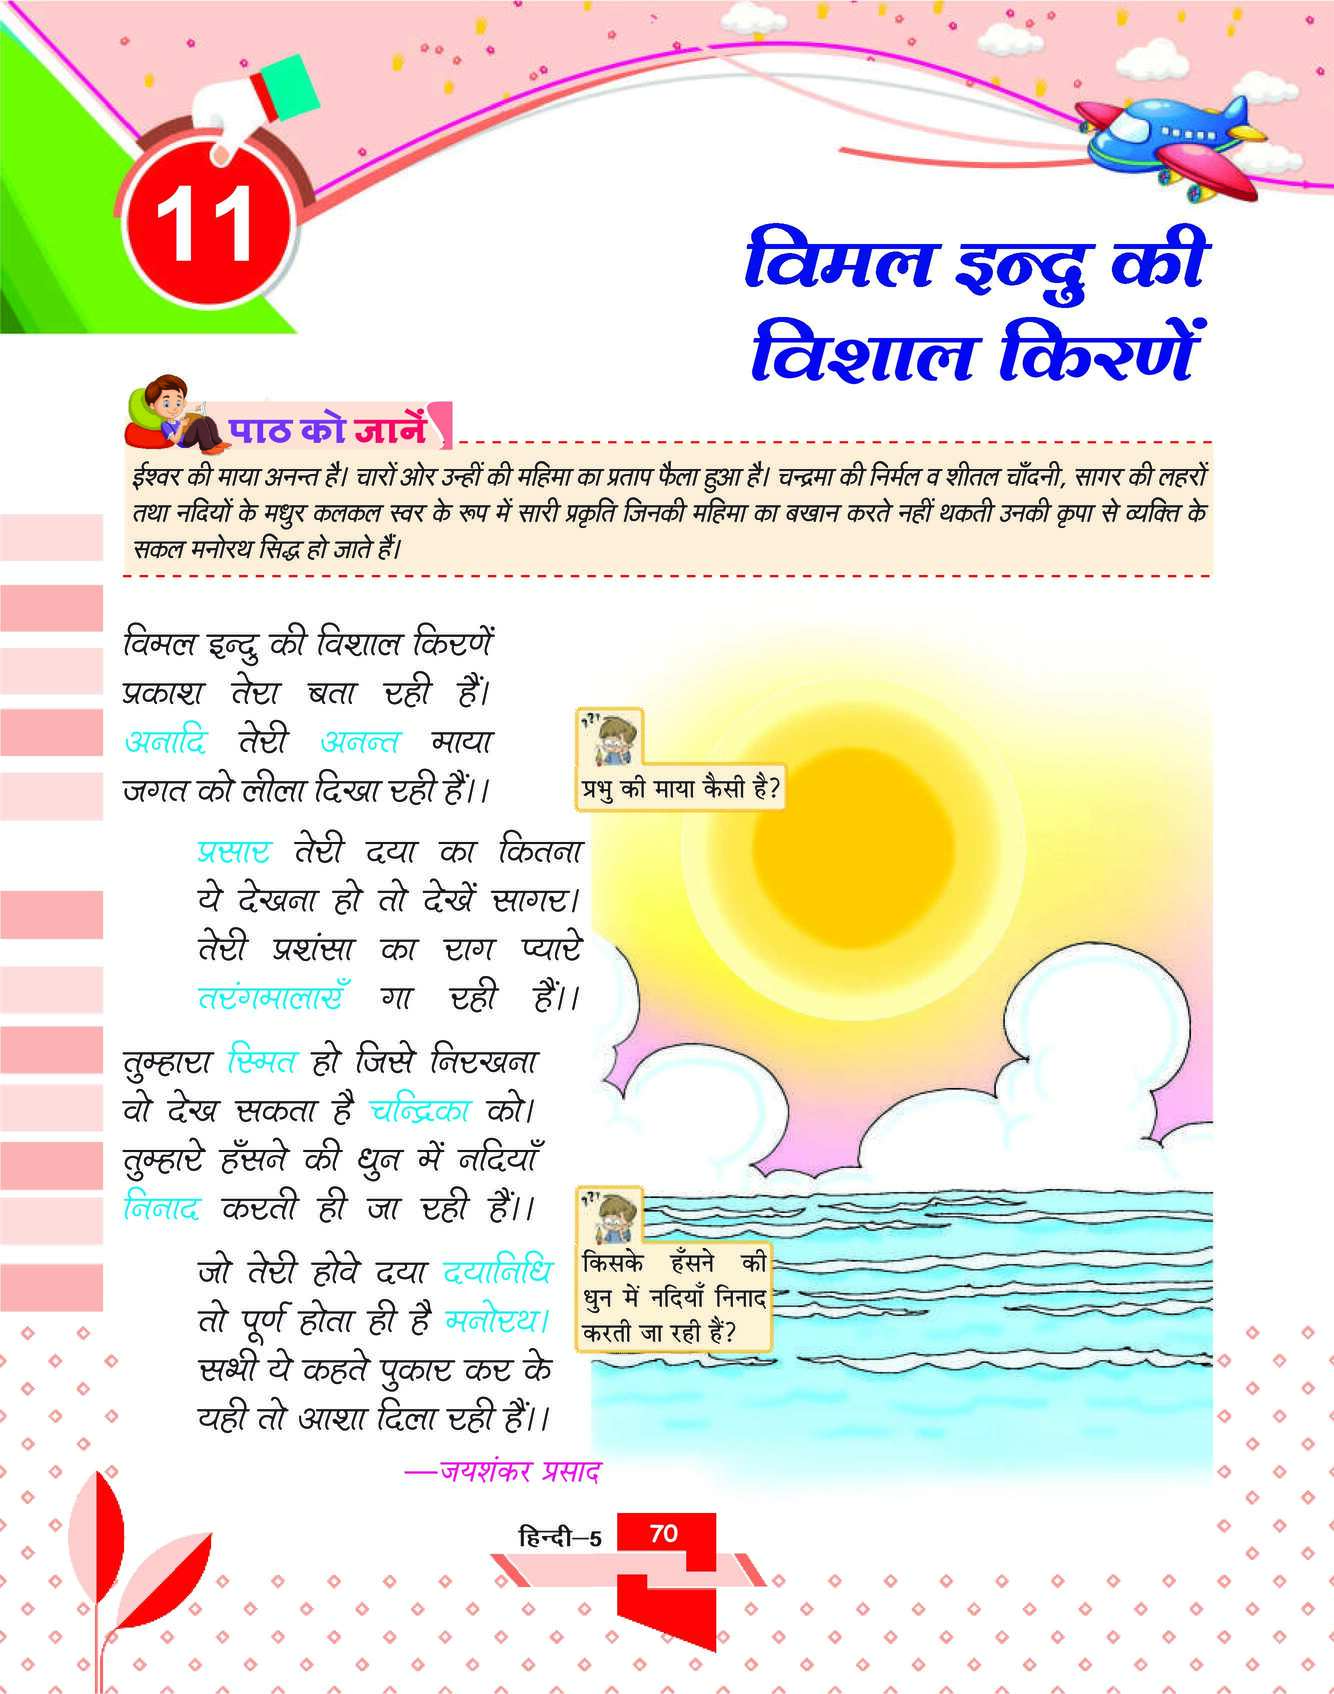 11
विमल इन्दु की
विशाल किरणें
पाठ को जानें
ईश्वर की माया अनन्त है। चारों ओर उन्हीं की महिमा का प्रताप फैला हुआ है। चन्द्रमा की निर्मल व शीतल चाँदनी, सागर की लहरों
तथा नदियों के मधुर कलकल स्वर के रूप में सारी प्रकृति जिनकी महिमा का बखान करते नहीं थकती उनकी कृपा से व्यक्ति के
सकल मनोरथ सिद्ध हो जाते हैं।
विमल इन्दु की विशाल किरणें
प्रकाश तेरा बता रही हैं।
अनादि तेरी अनन्त माया
जगत को लीला दिखा रही हैं।।
???
प्रभु की माया कैसी है?
प्रसार तेरी दया का कितना
ये देखना हो तो देखें सागर।
तेरी प्रशंसा का राग प्यारे
तरंगमालाएँ गा रही हैं।।
तुम्हारा स्मित हो जिसे निरखना
वो देख सकता है चन्द्रिका को।
तुम्हारे हँसने की धुन में नदियाँ
निनाद करती ही जा रही हैं।।
???
किसके हँसने की
धुन में नदियाँ निनाद
करती जा रही हैं?
जो तेरी होवे दया दयानिधि
तो पूर्ण होता ही है मनोरथ।
सभी ये कहते पुकार कर के
यही तो आशा दिला रही हैं।।
—जयशंकर प्रसाद
हिन्दी–5
70